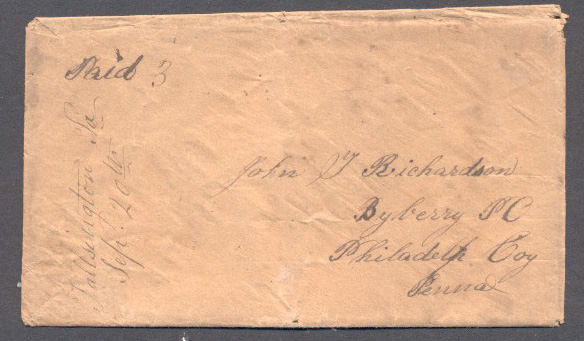 Paid 3
Fallsington Pa
Sep. 20th
John T Richardson
Byberry PO
Philadelp Coy
Penna